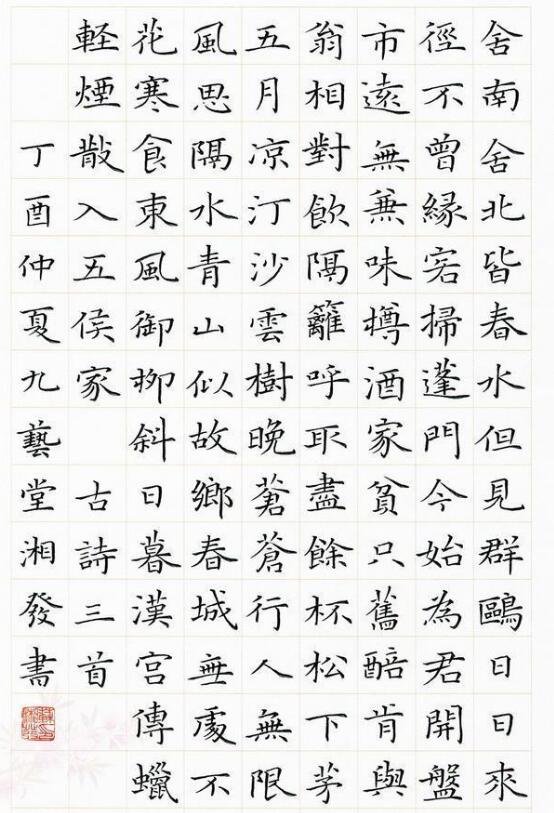 舍南舍北皆春水但見群鷗日日來
徑不曾緣客掃蓬門今始為君開盤
市遠無兼味樽酒家貧只舊醅肯與
翁相對飲隔籬呼取盡餘杯松下茅
五月凉汀沙雲樹晚蒼蒼行人無限
風思隔水青山似故鄉春城無處不
花寒食東風御柳斜日暮漢宮傳蠟
軽煙散入五侯家 古詩三首
丁酉仲夏九藝堂湘發書